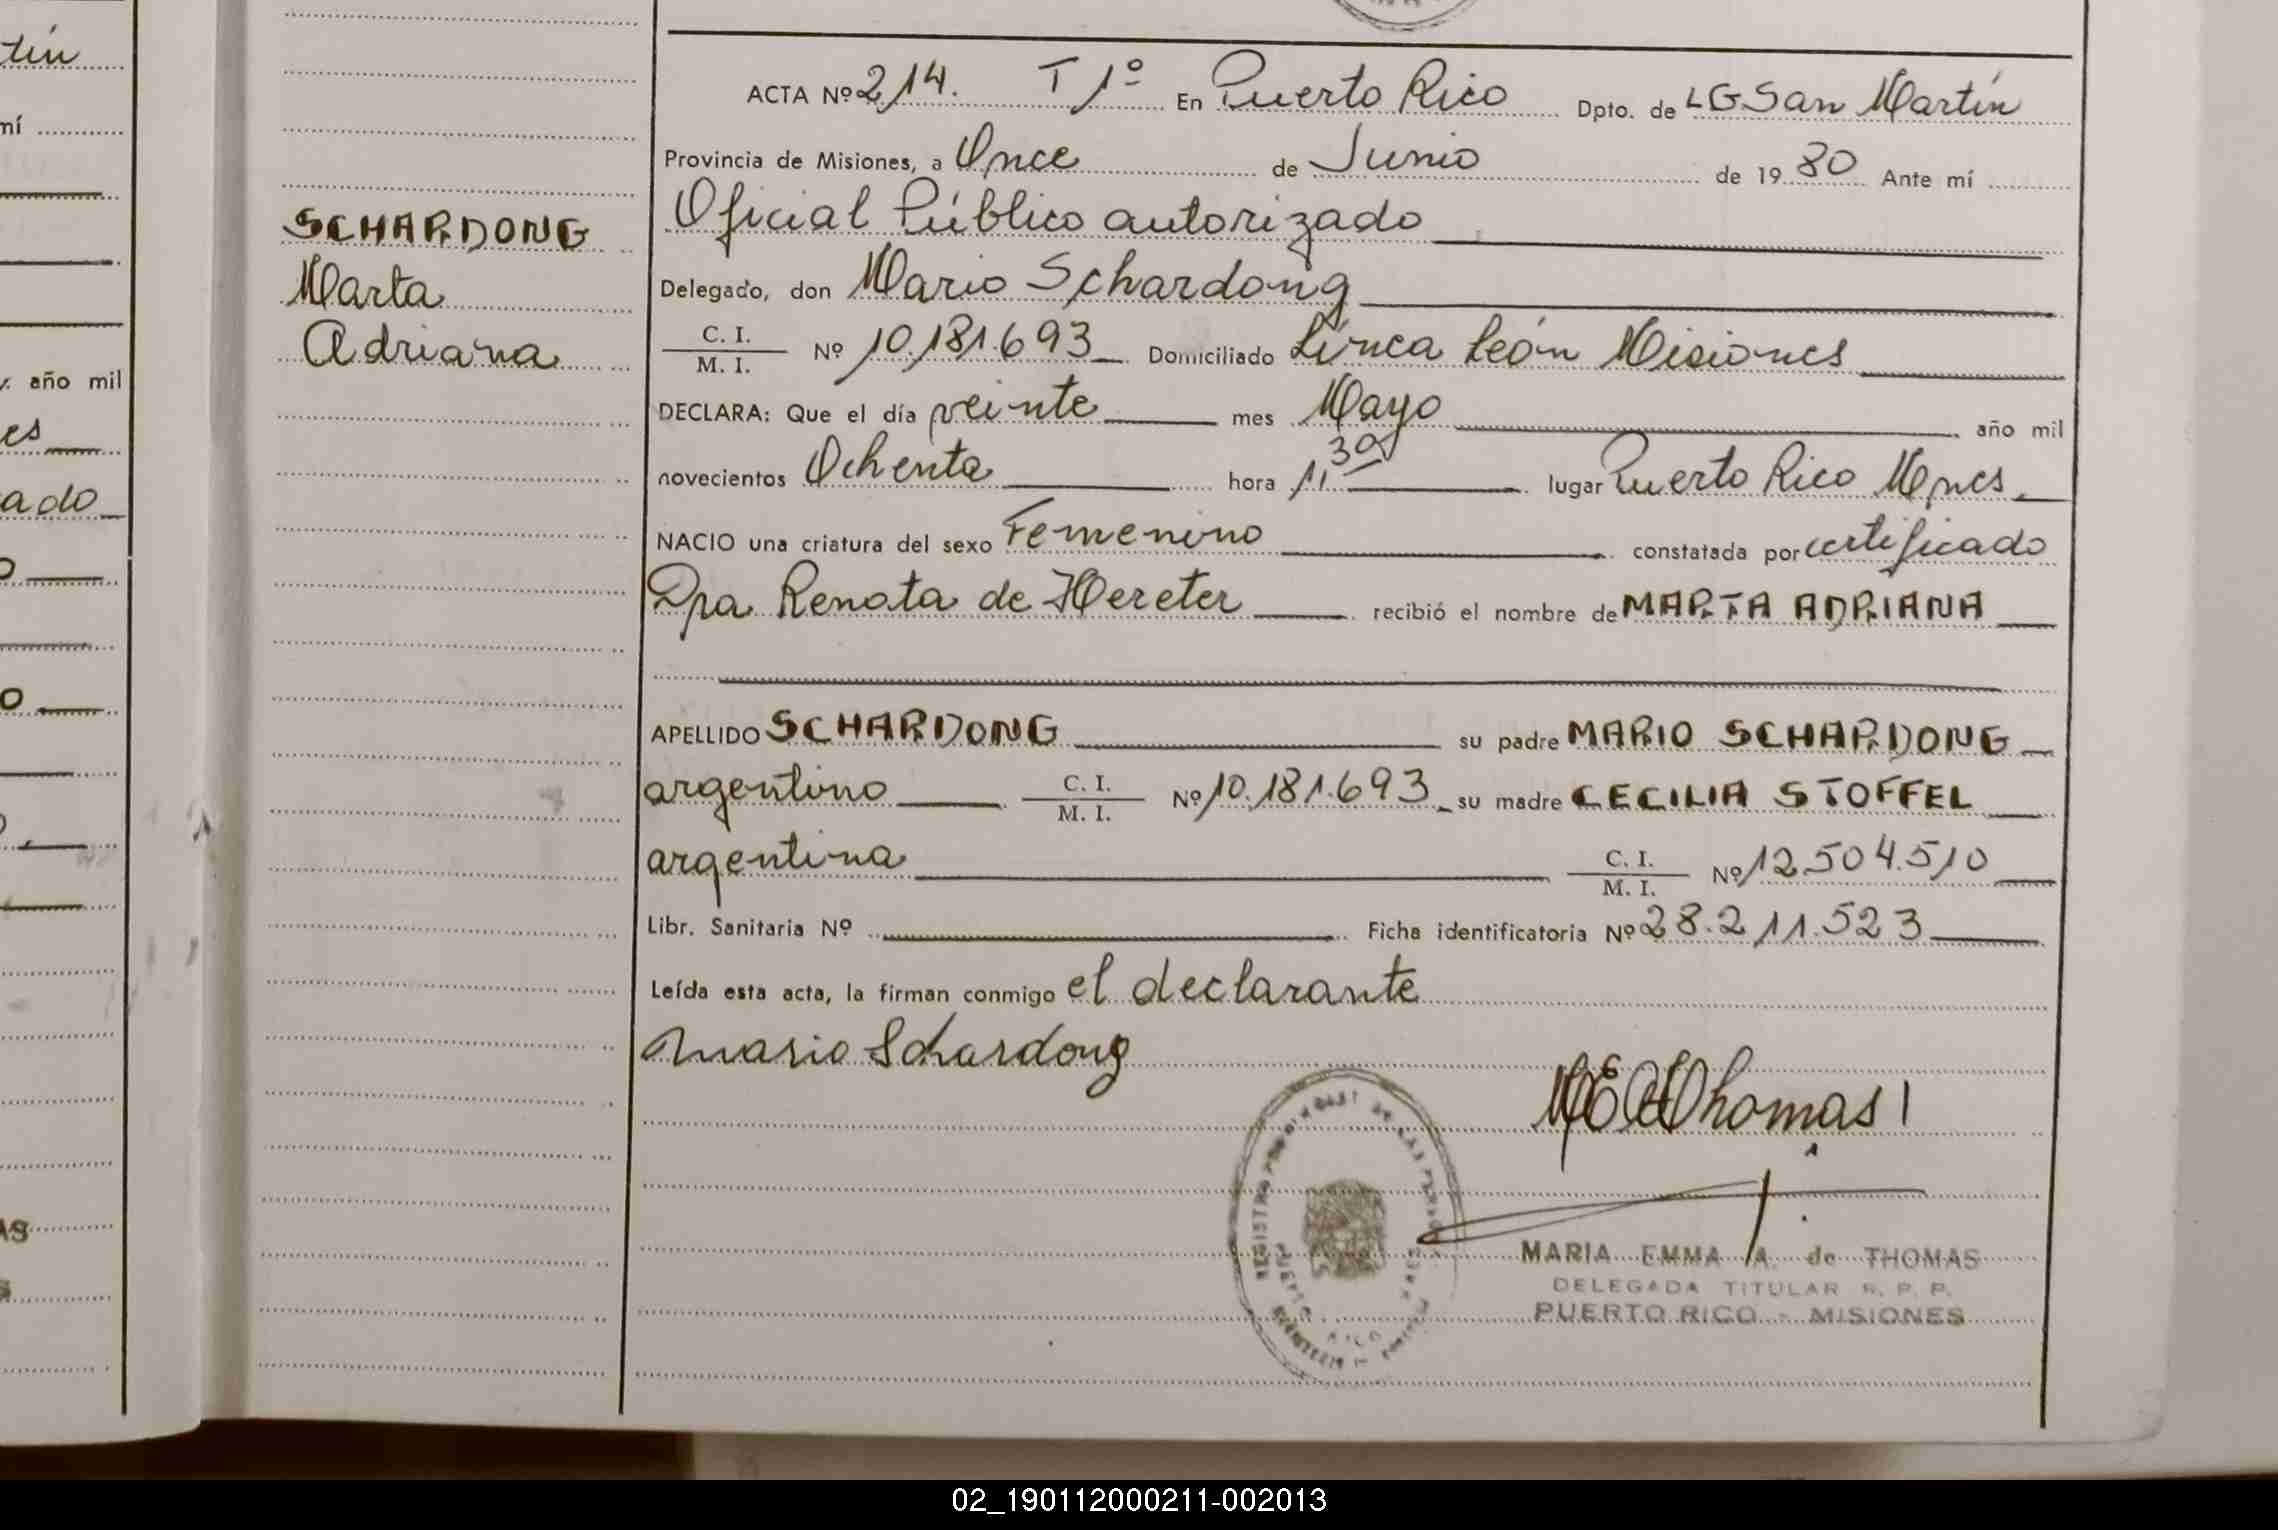 tín
mí
y. año mil
es
ado
o
o
AS
SCHARDONG
Marta
Adriana
ACTA Nº 214. T 1º En Puerto Rico Dpto. de LG San Martín
Provincia de Misiones, a Once de Junio de 19 80 Ante mí
Oficial Público autorizado
Delegado, don Mario Schardong
C. I. / M. I. Nº 10.181.693 Domiciliado Línea León Misiones
DECLARA: Que el día veinte mes Mayo año mil
novecientos Ochenta hora 11 30 lugar Puerto Rico Mnes
NACIO una criatura del sexo Femenino constatada por certificado
Dra Renata de Hereter recibió el nombre de MARTA ADRIANA
APELLIDO SCHARDONG su padre MARIO SCHARDONG
argentino C. I. / M. I. Nº 10.181.693 su madre CECILIA STOFFEL
argentina C. I. / M. I. Nº 12.504.510
Libr. Sanitaria Nº Ficha identificatoria Nº 28.211.523
Leída esta acta, la firman conmigo el declarante
Mario Schardong
Thomas
REGISTRO PROVINCIAL DE LAS PERSONAS
PUERTO RICO
MARIA EMMA A. de THOMAS
DELEGADA TITULAR R. P. P.
PUERTO RICO - MISIONES
02_190112000211-002013